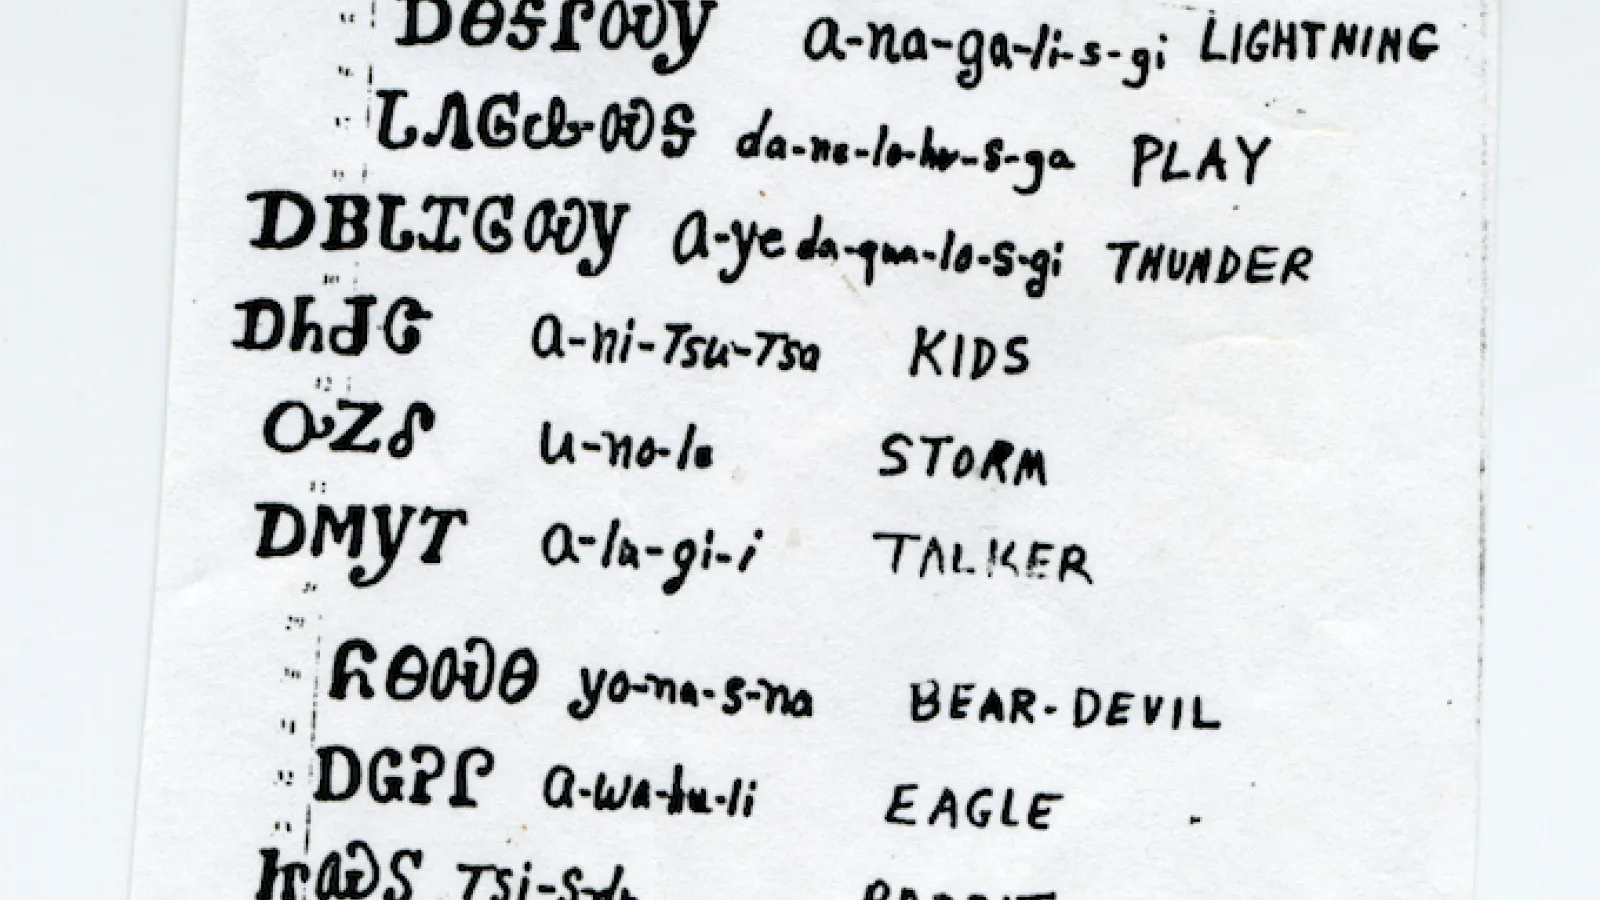 ᎠᎾᎦᎵᏍᎩ a-na-ga-li-s-gi LIGHTNING
ᏓᏁᎶᎲᏍᎦ da-ne-lo-hv-s-ga PLAY
ᎠᏰᏓᏆᎶᏍᎩ a-ye da-qua-lo-s-gi THUNDER
ᎠᏂᏧᏣ a-ni-Tsu-Tsa KIDS
ᎤᏃᎴ u-no-le STORM
ᎠᎷᎩᎢ a-lu-gi-i TALKER
ᏲᎾᏍᎾ yo-na-s-na BEAR-DEVIL
ᎠᏩᎮᎵ a-wa-hu-li EAGLE
ᏥᏍᏚ Tsi-s-du